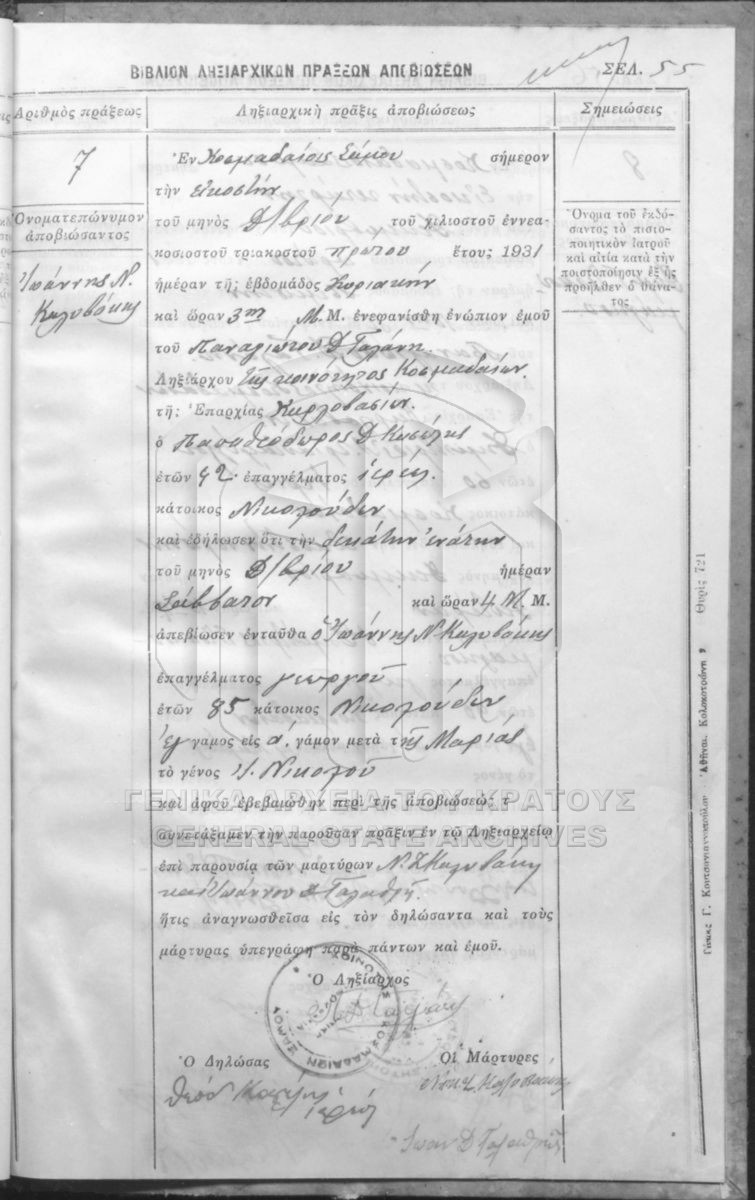 ΒΙΒΛΙΟΝ ΛΗΞΙΑΡΧΙΚΩΝ ΠΡΑΞΕΩΝ ΑΠΟΒΙΩΣΕΩΝ
ΣΕΛ. 55
Ἀριθμὸς πράξεως
Ληξιαρχικὴ πρᾶξις ἀποβιώσεως
Σημειώσεις
7
Ὀνοματεπώνυμον
ἀποβιώσαντος
Ἰωάννης Ν.
Καλυβάκης
Ἐν Κοσμαδαίοις Σάμου σήμερον
τὴν εἰκοστὴν
τοῦ μηνὸς Δ/βρίου τοῦ χιλιοστοῦ ἐννεα-
κοσιοστοῦ τριακοστοῦ πρώτου ἔτους 1931
ἡμέραν τῆς ἑβδομάδος Κυριακὴν
καὶ ὥραν 3ην Μ. Μ. ἐνεφανίσθη ἐνώπιον ἐμοῦ
τοῦ Παναγιώτου Δ Γαλάνη.
Ληξιάρχου τῆς κοινότητος Κοσμαδαίων.
τῆς Ἐπαρχίας Καρλοβασίων.
ὁ Παπαθεόδωρος Δ.
ἐτῶν 42 ἐπαγγέλματος ἱερεύς.
κάτοικος Νικολούδων
καὶ ἐδήλωσεν ὅτι τὴν δεκάτην ἐνάτην
τοῦ μηνὸς Δ/βρίου ἡμέραν
Σάββατον καὶ ὥραν 4 Μ. Μ.
ἀπεβίωσεν ἐνταῦθα ὁ Ἰωάννης Ν Καλυβάκης
ἐπαγγέλματος γεωργοῦ
ἐτῶν 85 κάτοικος Νικολούδων
Ἔγγαμος εἰς ά. γάμον μετὰ τῆς Μαρίας
τὸ γένος Ι. Νικολοῦ
καὶ ἀφοῦ ἐβεβαιώθην περὶ τῆς ἀποβιώσεώς τ
συνετάξαμεν τὴν παροῦσαν πρᾶξιν ἐν τῷ Ληξιαρχείῳ
ἐπὶ παρουσίᾳ τῶν μαρτύρων Ν. Σ Καλυβάκη
καὶ Ἰωάννου Δ
ἥτις ἀναγνωσθεῖσα εἰς τὸν δηλώσαντα καὶ τοὺς
μάρτυρας ὑπεγράφη παρὰ πάντων καὶ ἐμοῦ.
Ὁ Ληξίαρχος
ΚΟΙΝΟΤΗΣ ΚΟΣΜΑΔΑΙΩΝ ΣΑΜΟΥ
Ὁ Δηλώσας
Οἱ Μάρτυρες
Ὄνομα τοῦ ἐκδό-
σαντος τὸ πιστο-
ποιητικὸν ἰατροῦ
καὶ αἰτία κατὰ τὴν
ποιστοποίησιν ἐξ ἧς
προῆλθεν ὁ θάνα-
τος
ΓΕΝΙΚΑ ΑΡΧΕΙΑ ΤΟΥ ΚΡΑΤΟΥΣ
GENERAL STATE ARCHIVES
Γ. Κουτσογιαννοπούλου - Ἀθῆναι. Κολοκοτρώνη 9 Θυρὶς 721